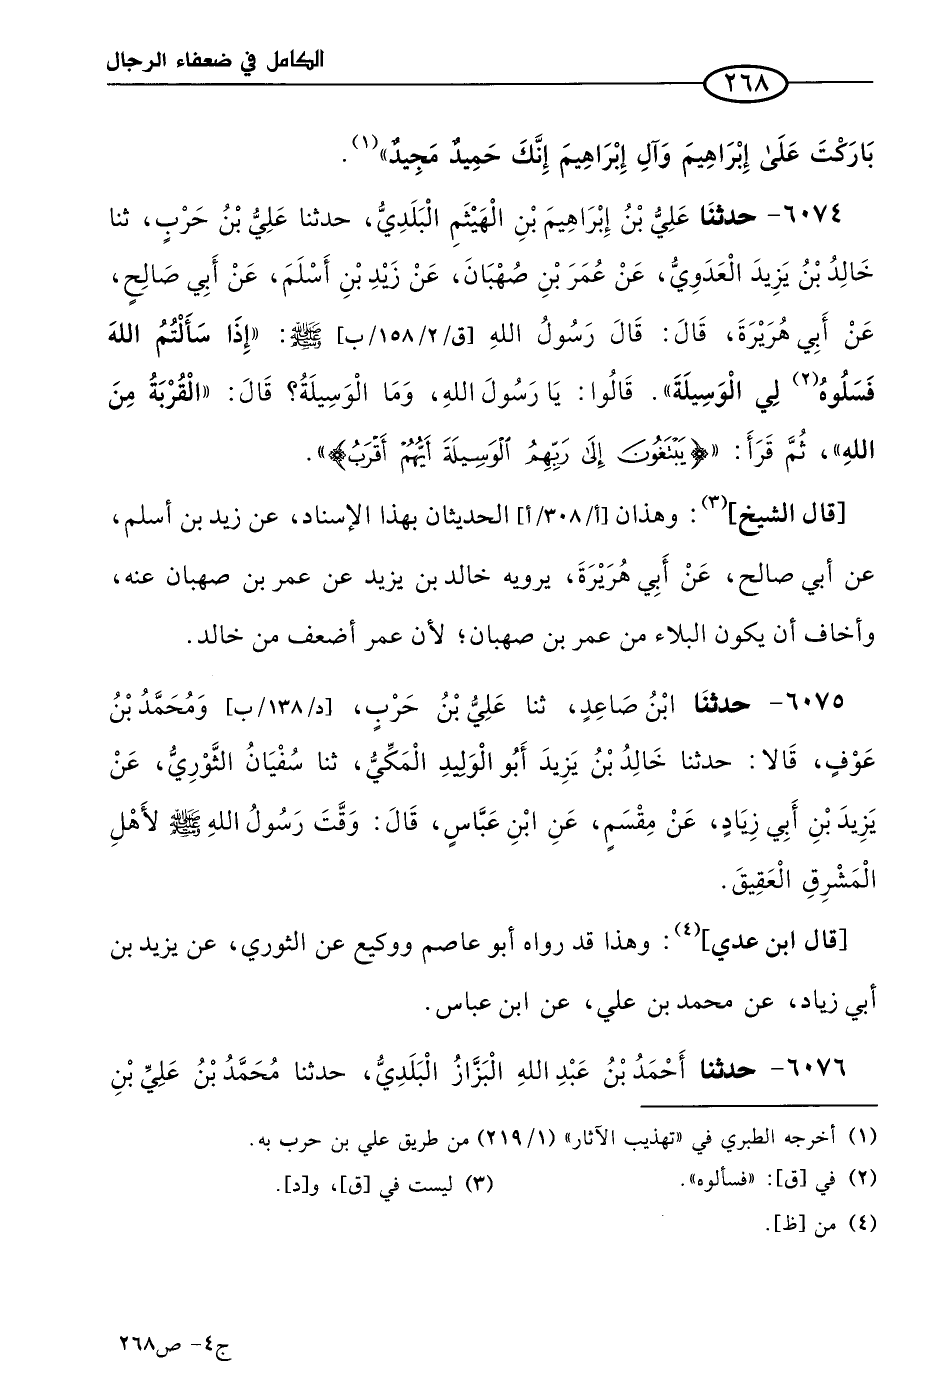 الكامل في ضعفاء الرجال
٢٦٨
بَارَكْتَ عَلَىٰ إِبْرَاهِيمَ وَآلِ إِبْرَاهِيمَ إِنَّكَ حَمِيدٌ مَجِيدٌ»(١).
٦٠٧٤- حدثنَا عَلِيُّ بْنُ إِبْرَاهِيمَ بْنِ الْهَيْثَمِ الْبَلَدِيُّ، حدثنا عَلِيُّ بْنُ حَرْبٍ، ثنا
خَالِدُ بْنُ يَزِيدَ الْعَدَوِيُّ، عَنْ عُمَرَ بْنِ صُهْبَانَ، عَنْ زَيْدِ بْنِ أَسْلَمَ، عَنْ أَبِي صَالِحٍ،
عَنْ أَبِي هُرَيْرَةَ، قَالَ: قَالَ رَسُولُ اللهِ [ق/١٥٨/٢/ب] ﷺ: «إِذَا سَأَلْتُمُ اللهَ
فَسَلُوهُ(٢) لِي الْوَسِيلَةَ». قَالُوا: يَا رَسُولَ اللهِ، وَمَا الْوَسِيلَةُ؟ قَالَ: «الْقُرْبَةُ مِنَ
اللهِ»، ثُمَّ قَرَأَ: «﴿يَبْتَغُونَ إِلَىٰ رَبِّهِمُ ٱلْوَسِيلَةَ أَيُّهُمْ أَقْرَبُ﴾».
[قال الشيخ](٣): وهذان [أ/٣٠٨/أ] الحديثان بهذا الإسناد، عن زيد بن أسلم،
عن أبي صالح، عَنْ أَبِي هُرَيْرَةَ، يرويه خالد بن يزيد عن عمر بن صهبان عنه،
وأخاف أن يكون البلاء من عمر بن صهبان؛ لأن عمر أضعف من خالد.
٦٠٧٥- حدثنَا ابْنُ صَاعِدٍ، ثنا عَلِيُّ بْنُ حَرْبٍ، [د/١٣٨/ب] وَمُحَمَّدُ بْنُ
عَوْفٍ، قَالا: حدثنا خَالِدُ بْنُ يَزِيدَ أَبُو الْوَلِيدِ الْمَكِّيُّ، ثنا سُفْيَانُ الثَّوْرِيُّ، عَنْ
يَزِيدَ بْنِ أَبِي زِيَادٍ، عَنْ مِقْسَمٍ، عَنِ ابْنِ عَبَّاسٍ، قَالَ: وَقَّتَ رَسُولُ اللهِ ﷺ لأَهْلِ
الْمَشْرِقِ الْعَقِيقَ.
[قال ابن عدي](٤): وهذا قد رواه أبو عاصم ووكيع عن الثوري، عن يزيد بن
أبي زياد، عن محمد بن علي، عن ابن عباس.
٦٠٧٦- حدثنا أَحْمَدُ بْنُ عَبْدِ اللهِ الْبَزَّازُ الْبَلَدِيُّ، حدثنا مُحَمَّدُ بْنُ عَلِيِّ بْنِ
(١) أخرجه الطبري في «تهذيب الآثار» (٢١٩/١) من طريق علي بن حرب به.
(٢) في [ق]: «فسألوه». (٣) ليست في [ق]، و[د].
(٤) من [ظ].
ج٤- ص٢٦٨